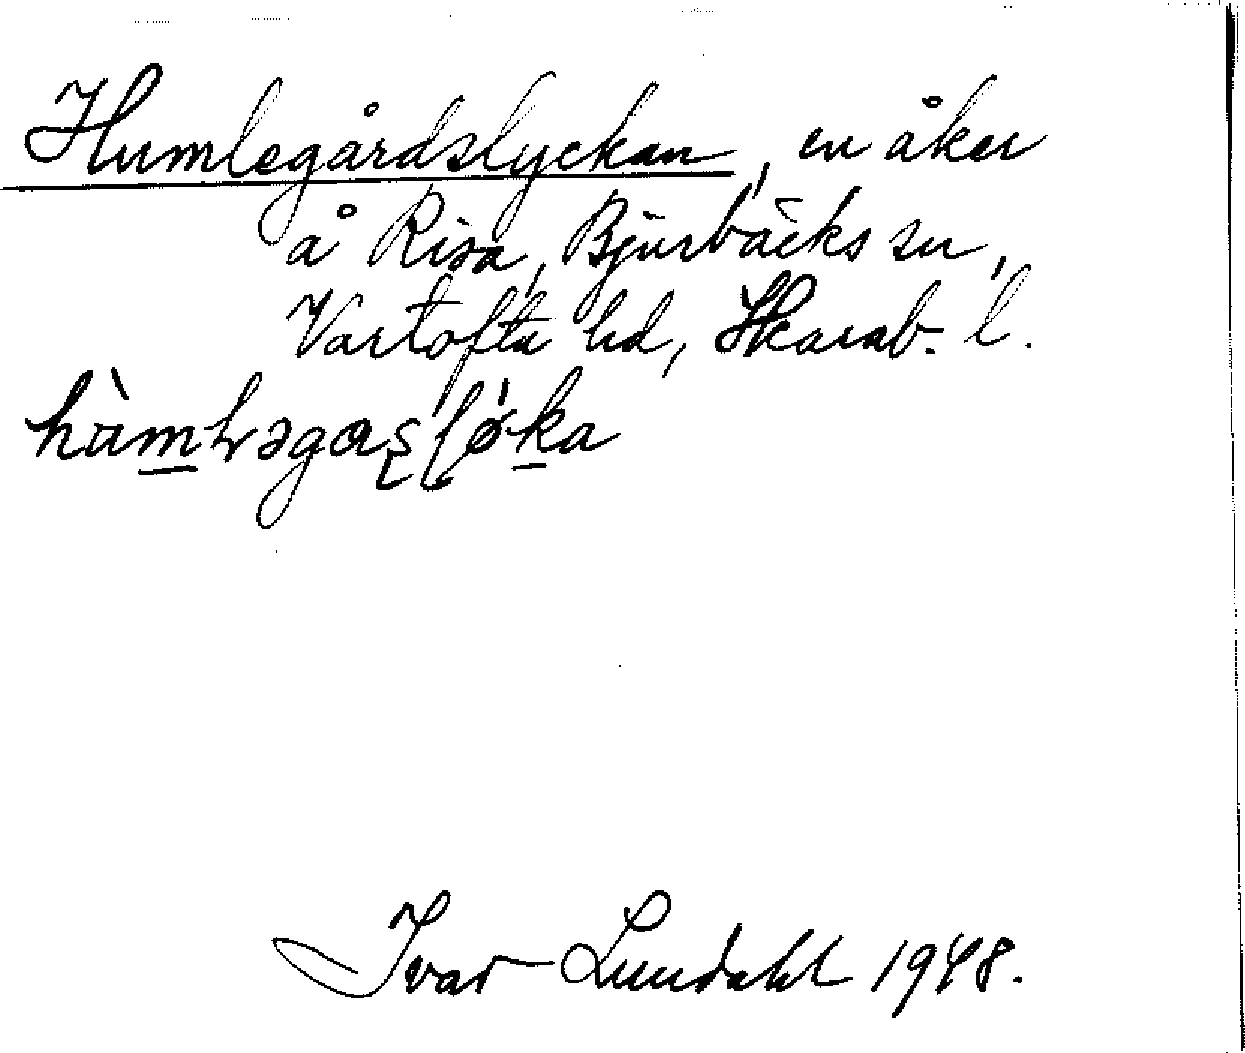 Humlegårdslyckan, en åker
å Risa, Bjurbäcks sn,
Vartofta hd, Skarab. l.
Ivar Lundahl 1948.